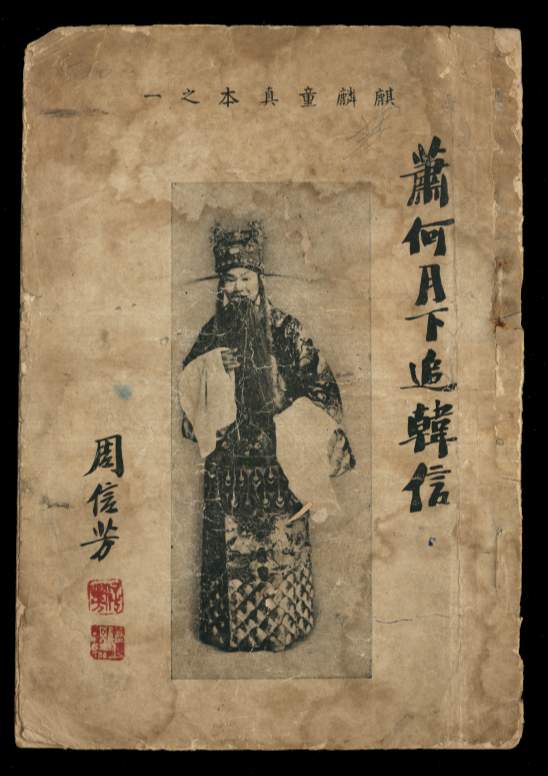 麒麟童真本之一
蕭何月下追韓信
周信芳